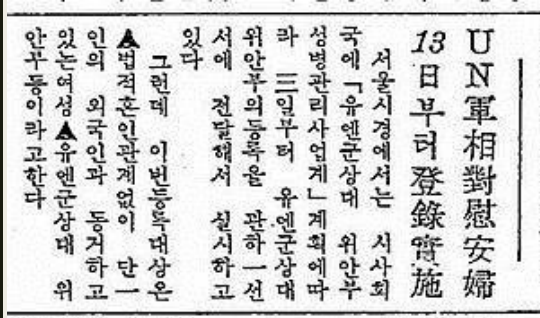 UN軍相對慰安婦
13日부터登錄實施
서울시경에서는 시사회
국에「유엔군상대 위안부
성병관리사업계」계획에따
라 三일부터 유엔군상대
위안부의등록을 관하一선
서에 전달해서 실시하고
있다
그런데 이번등록대상은
▲법적혼인관계없이 단一
인의 외국인과 동거하고
있는여성▲유엔군상대 위
안부등이라고한다